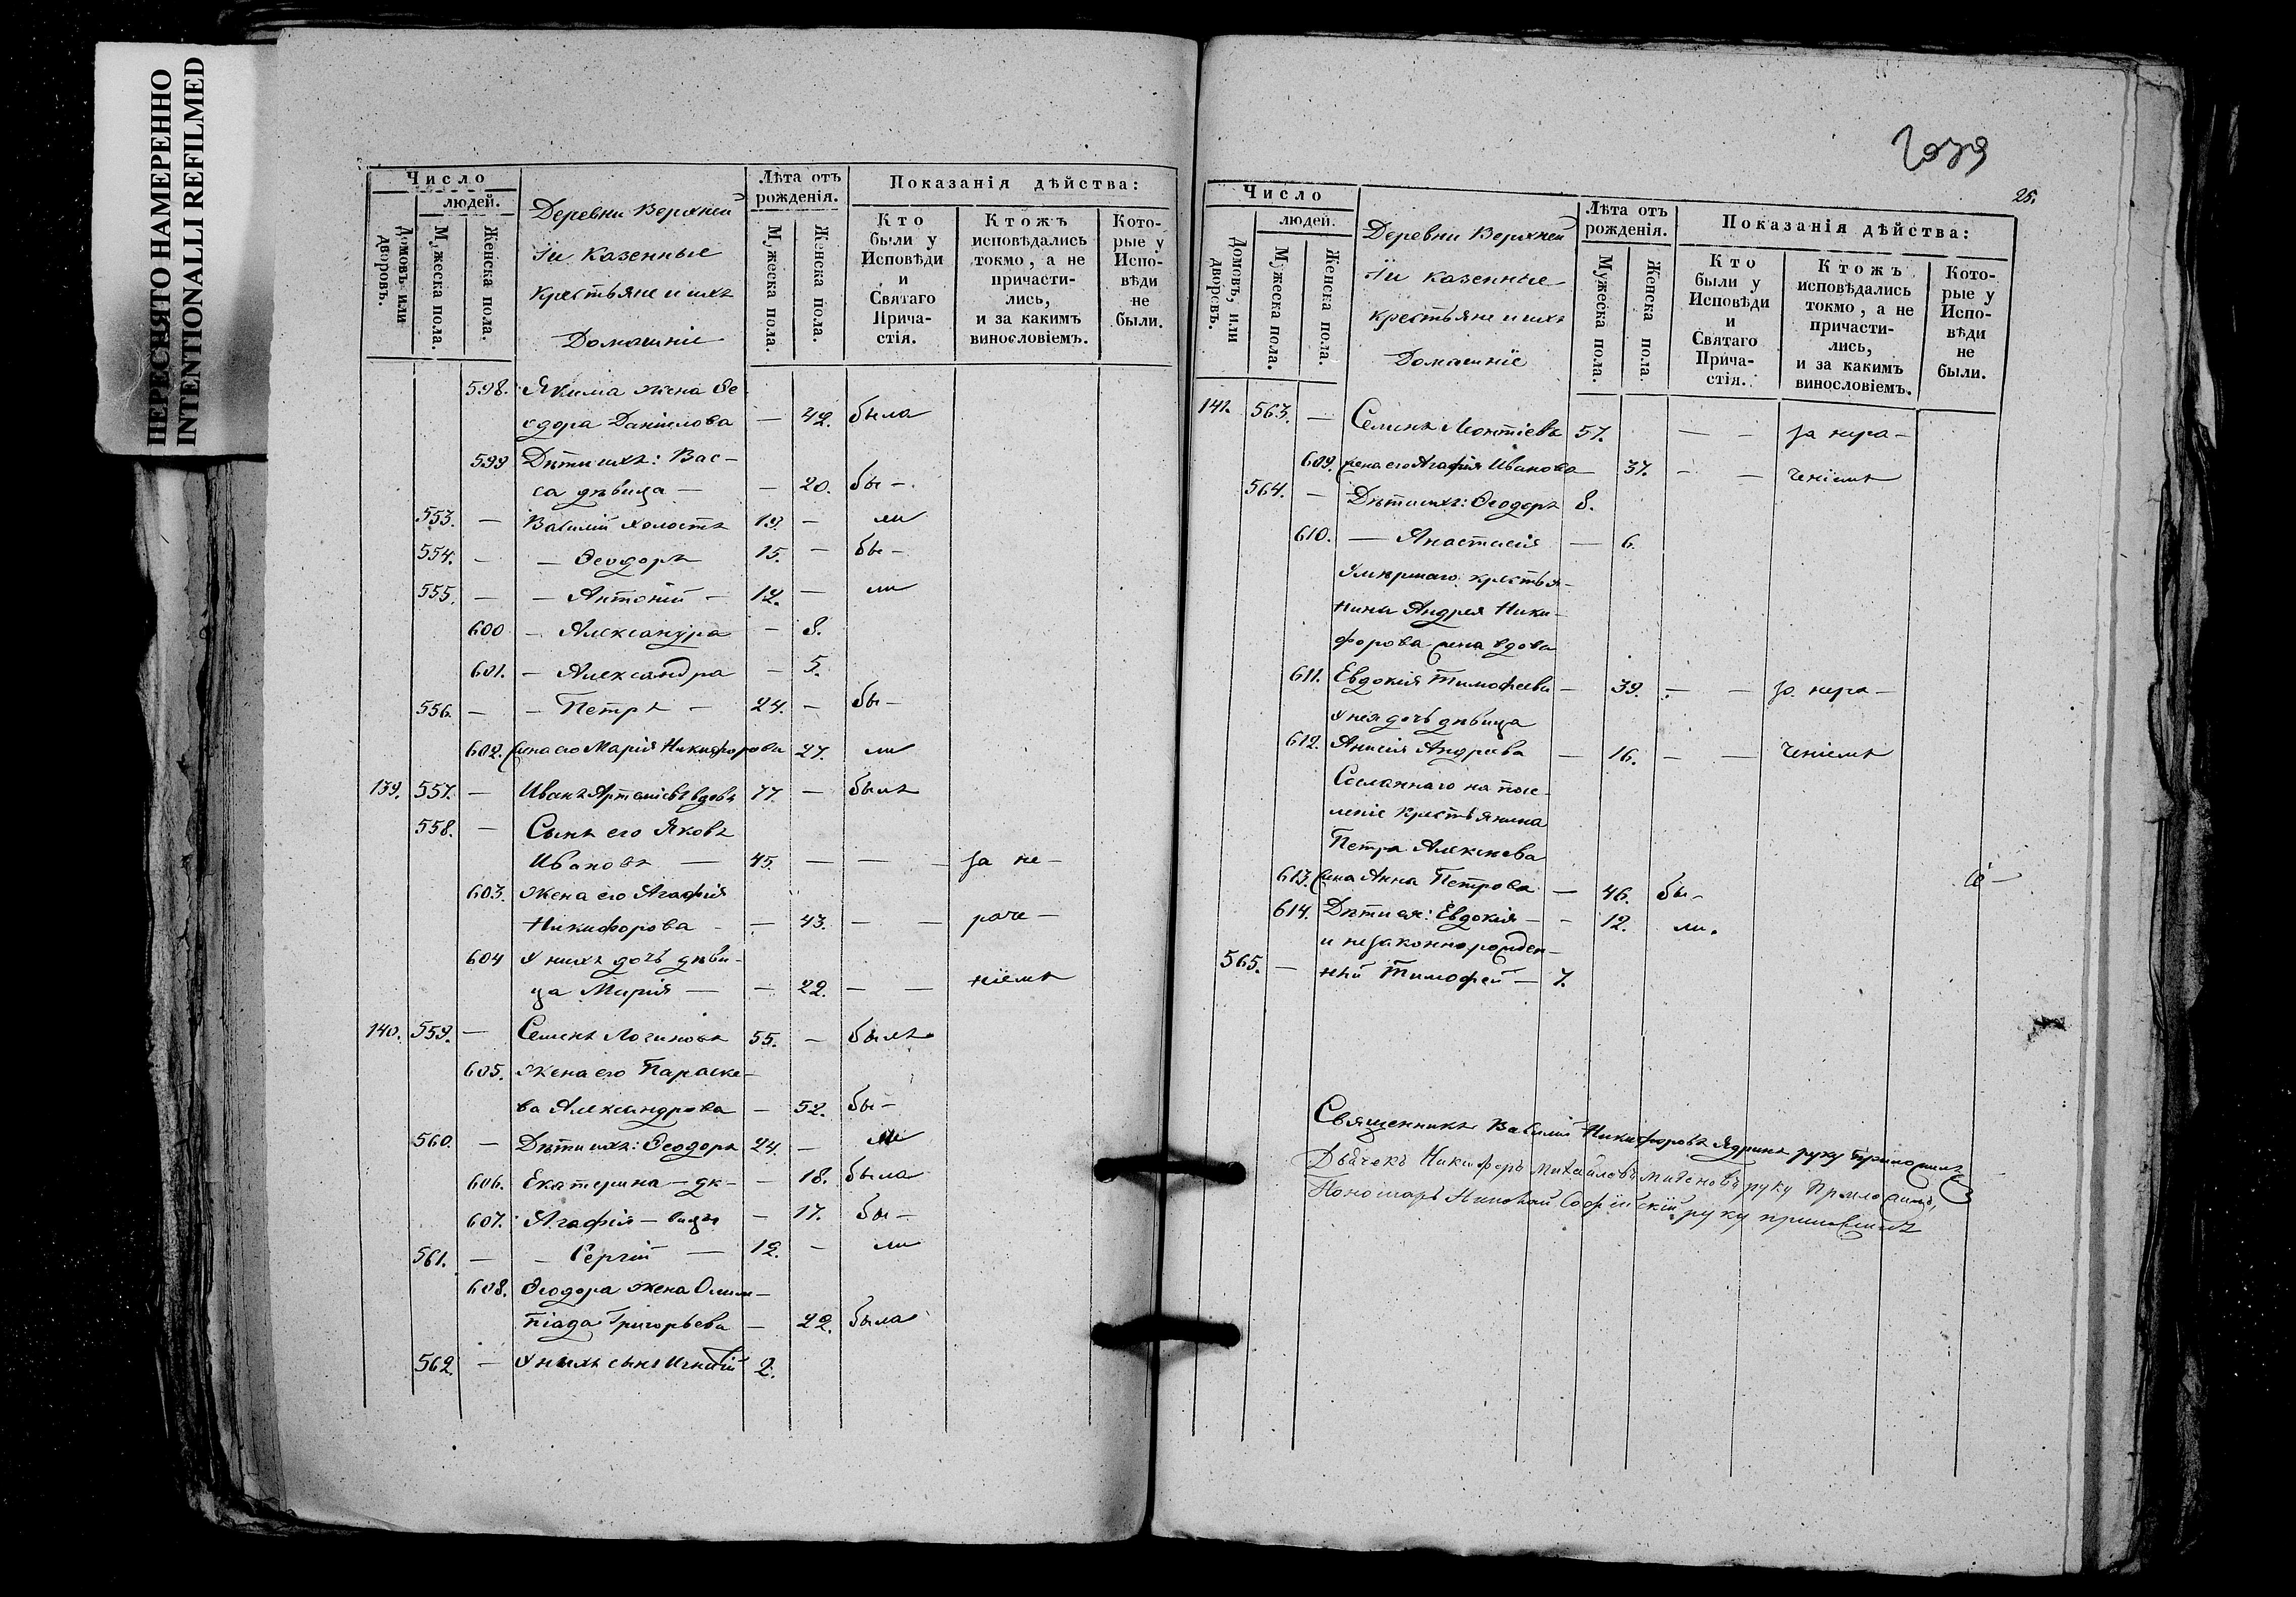 ПЕРЕСНЯТО НАМЕРЕННО
INTENTIONALLI REFILMED
Число
людей.
Домовъ или дворовъ.
Мужеска пола.
Женска пола.
Деревни Верхней
казенные
крестьяне и ихъ
Домашніе
Лѣта отъ рожденія.
Мужеска пола.
Женска пола.
Показанія дѣйства:
Кто были у Исповѣди и Святаго Прича-стія.
Ктожъ исповѣдались токмо, а не причасти-лись, и за какимъ винословіемъ.
Кото-рые у Испо-вѣди не были.
598. Якима жена Ѳе
одора Данилова — 42. была
599 Дѣти ихъ: Вас-
са дѣвица — — 20. бы -
553. — Василій холостъ 19. — ли
554. — — Ѳеодоръ 15. — бы -
555. — — Антоній — 12. — ли
600 — Александра — 8.
601. — Александра — 5.
556. — — Петръ — 24. — бы -
602. жена его Марія Никифорова 27. ли
139. 557. — Иванъ Артеміевъ вдовъ 77. — былъ
558. — Сынъ его Яковъ
Ивановъ — 45. — — — за не-
603. Жена его Агафія
Никифорова — — 43. — — раче-
604 У нихъ дочь дѣви-
ца Марія — — 22. — — ніемъ
140. 559. — Семенъ Логиновъ 55. — былъ
605. Жена его Параске-
ва Александрова — 52. бы -
560. — Дѣти ихъ: Ѳеодоръ 24. — ли
606. Екатерина — дѣ- — 18. была
607. Агафія — вицы — 17. бы -
561. — — Сергій — 12. — ли
608. Ѳеодора жена Олим-
піада Григорьева — 22. была
562. — У нихъ сынъ Игнатій 2.
25.
Число
людей.
Домовъ, или дворовъ.
Мужеска пола.
Женска пола.
Деревни Верхней
казенные
крестьяне и ихъ
Домашніе
Лѣта отъ рожденія.
Мужеска пола.
Женска пола.
Показанія дѣйства:
Кто были у Исповѣди и Святаго Прича-стія.
Ктожъ исповѣдались токмо, а не причасти-лись, и за какимъ винословіемъ.
Кото-рые у Испо-вѣди не были.
141. 563. — Семенъ Леонтіевъ 57. — — за нера-
609. жена его Агафія Иванова — 37. — — ченіемъ
564. — Дѣти ихъ: Ѳеодоръ 8.
610. — Анастасія — 6.
Умершаго крестья-
нина Андрея Ники-
форова жена вдова
611. Евдокія Тимофеева — 39. — — за нера-
У нея дочь дѣвица
612. Анисія Андреева — 16. — — ченіемъ
Сосланнаго на посе-
леніе крестьянина
Петра Алексѣева
613. жена Анна Петрова — 46. бы -
614. Дѣти ея: Евдокія — — 12. ли.
и незаконнорожден-
565. — ный Тимофей — 7.
Священникъ Василій Никифоровъ Ядринъ руку приложилъ
Дьячекъ Никифоръ Михайловъ руку Приложилъ,
Пономарь Николай Софійскій руку приложилъ